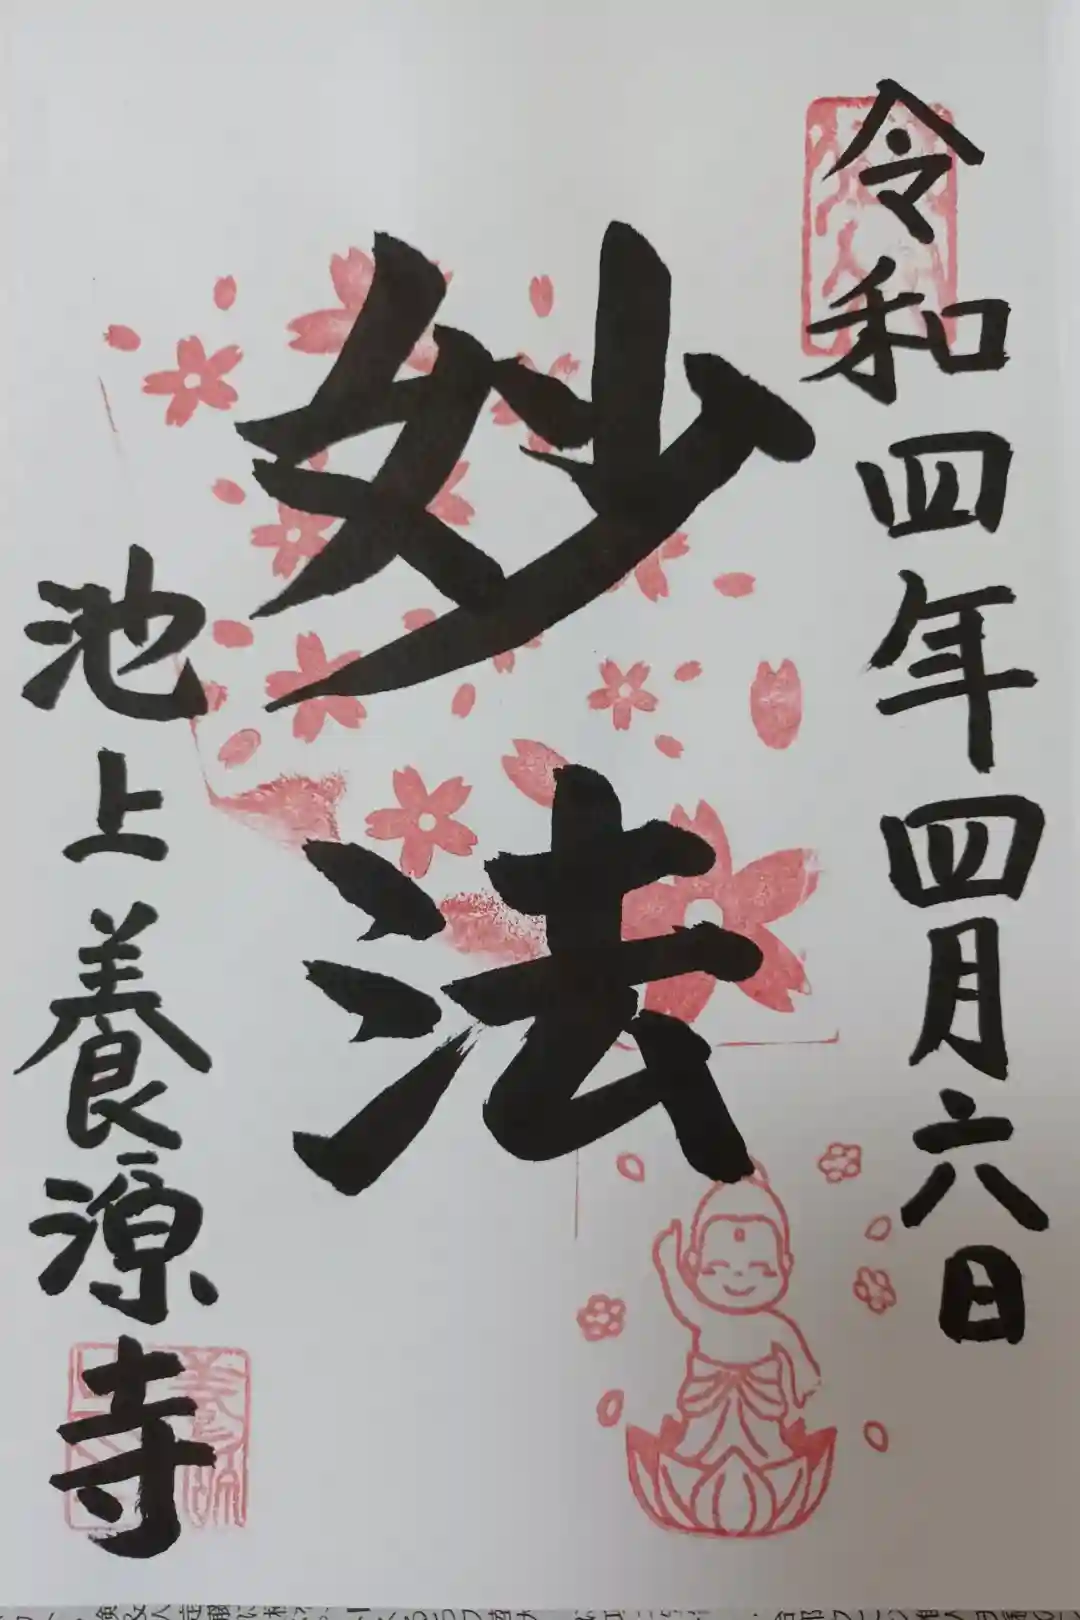 令和四年四月六日
妙法
池上養源寺